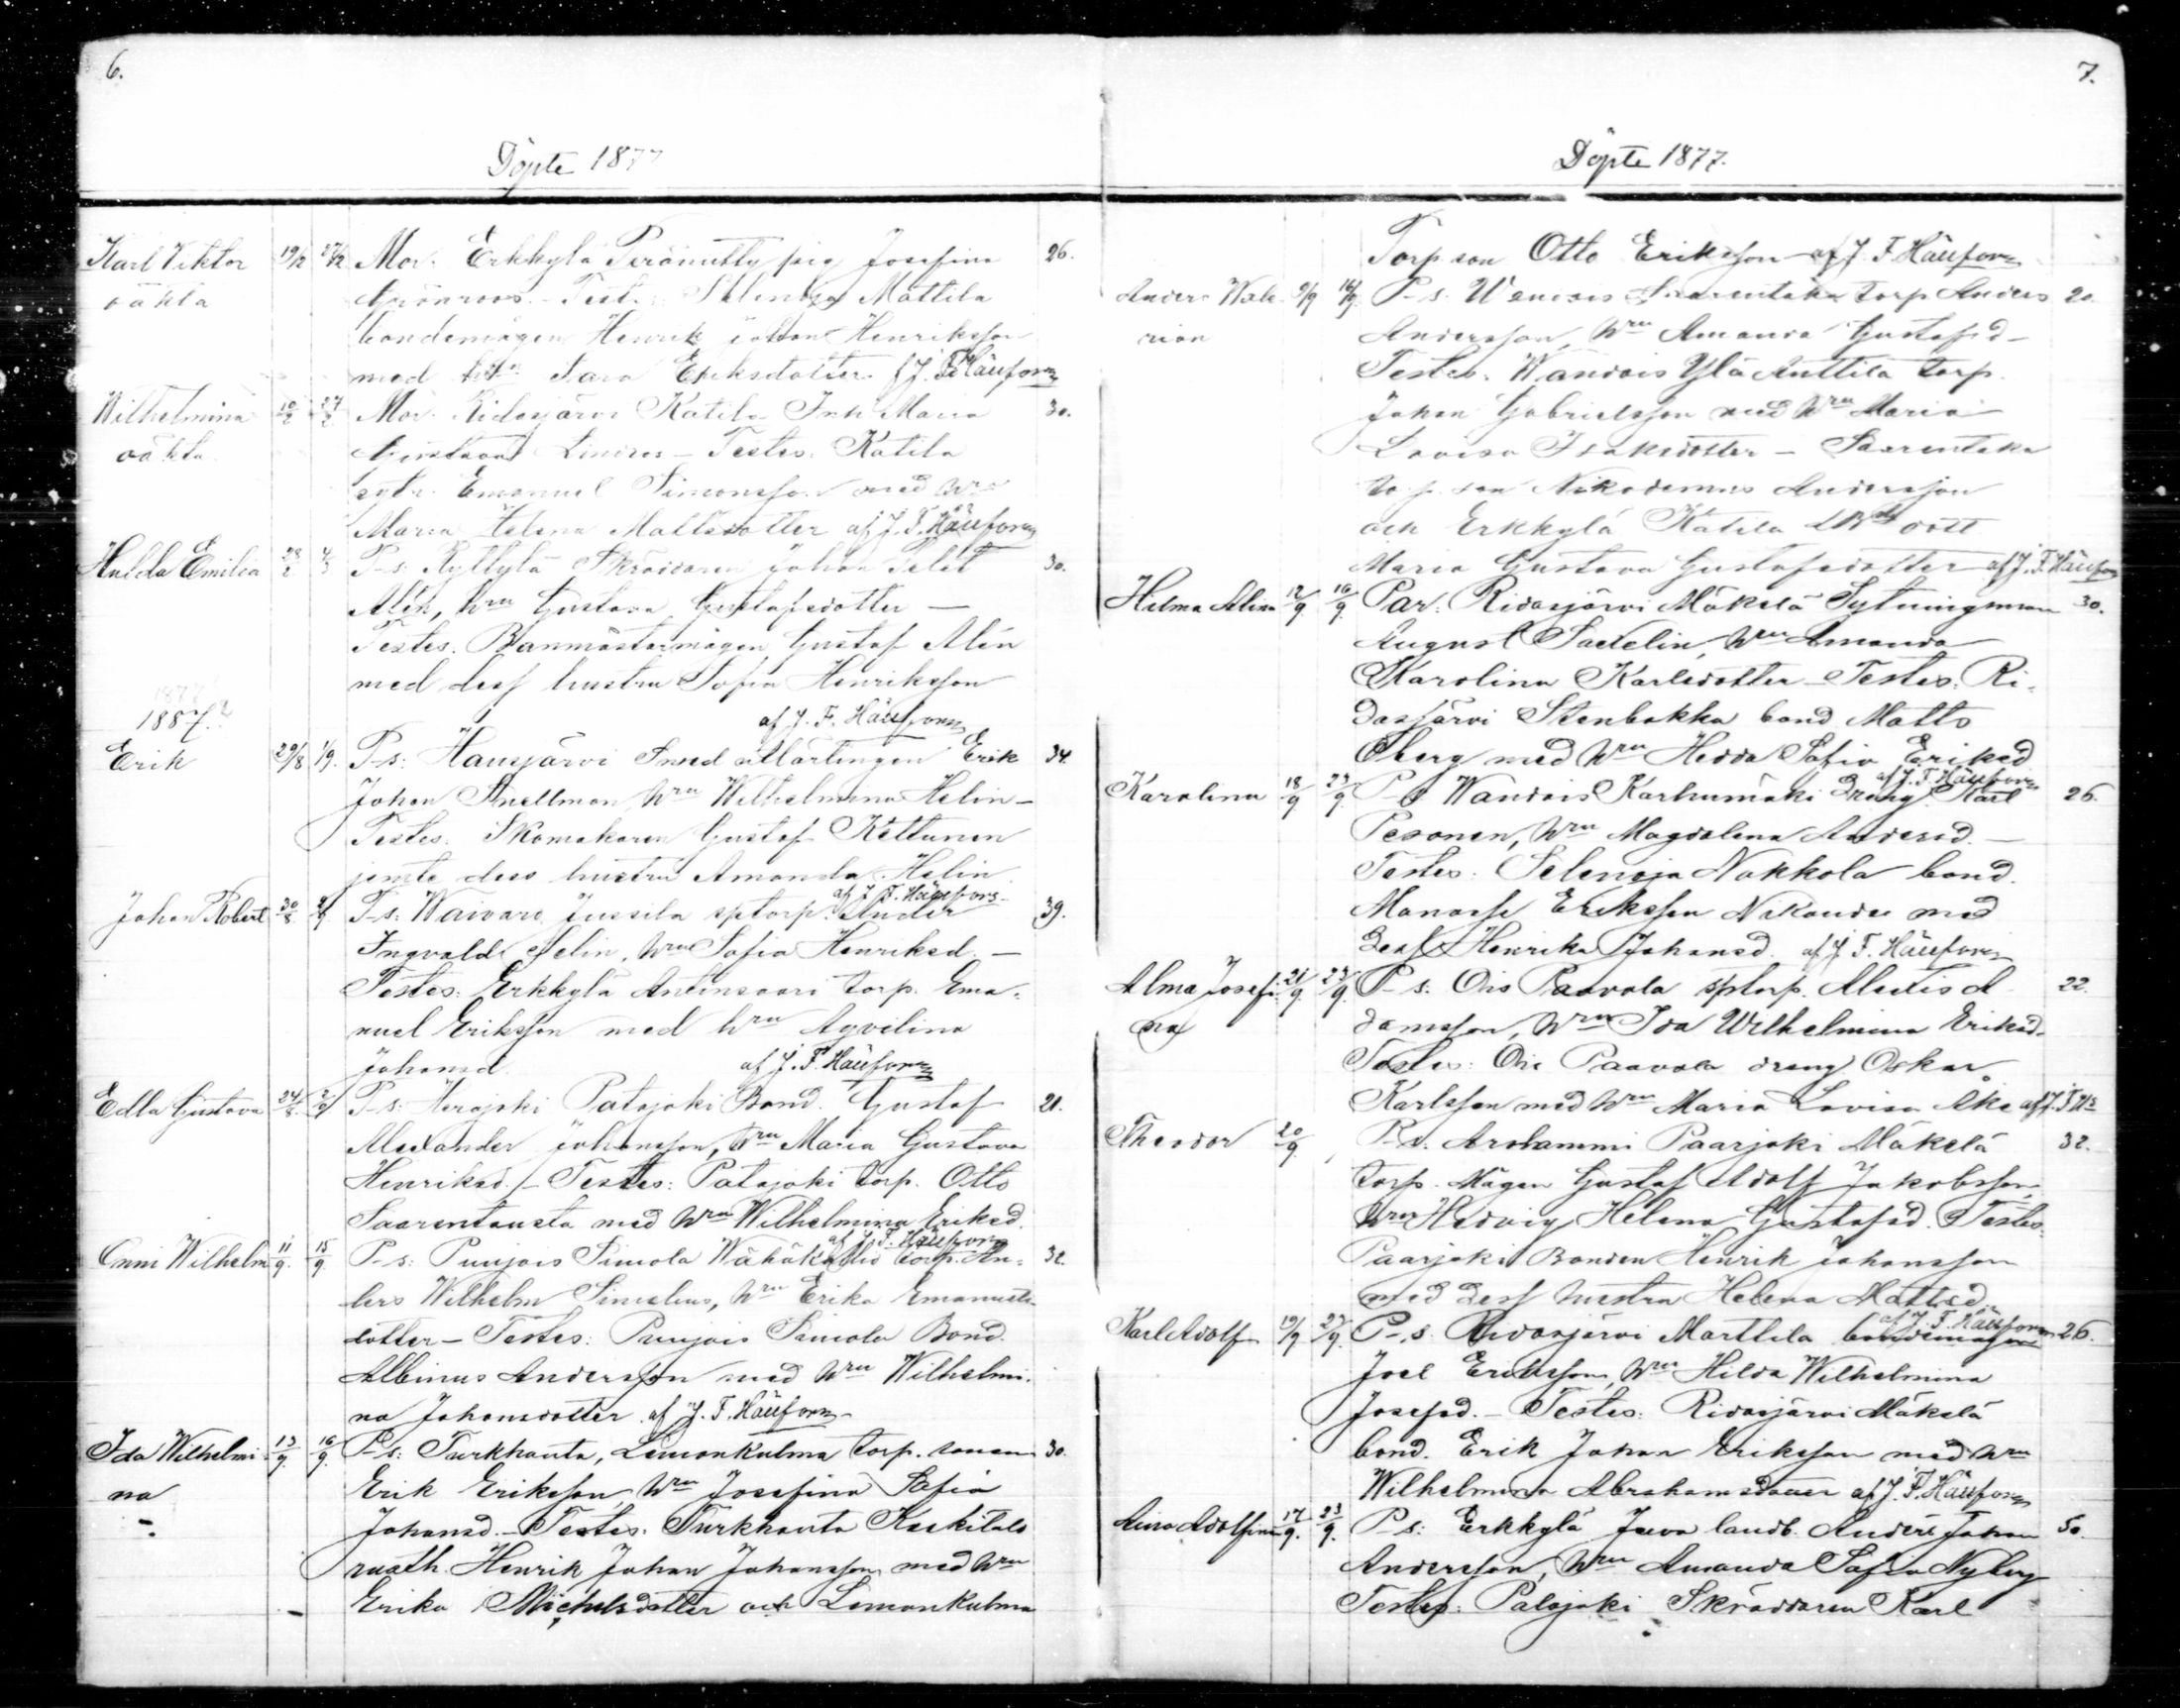 6.
Döpte 1877
Karl Viktor 19/2 27/2 Mor. Erkkylä pig Josefina 26.
oäkta Grönroos. Test. Mattila
bondemågen Henrik Johan Henriksson
med Sara Eriksdotter af J. F. Häufors
Wilhelmina 27/2 Mor. Ridasjärvi Katila Inh. Maria 30.
oäkta Gustava Lindros – Testes. Katila
Emanuel Simonsson med hru
Maria Helena Mattsdotter af J. F. Häufors
Hulda Emilia 28/2 Ps. Ryttylä Skräddaren Johan 30.
Alén, hru Gustava Gustafsdotter –
Testes. Banmästaremågen Gustaf Alén
med dess hustru Sofia Henriksson
1887.?
af J. F. Häufors
Erik 29/8 1/9. P-s: Hausjärvi Erik 34.
Johan Snellman hru Wilhelmina Helin –
Testes. Skomakaren Gustaf Kettunen
jemte dess hustru Amanda Helin
af J. F. Häufors
Johan Robert 30/8 P-s: Waivaro Jussila sptorp. Ander 39.
Ingvald Selin, hru Sofia Henriksd. –
Testes: Erkkylä Antinsaari torp. Ema-
nuel Eriksson med hru Agvilina
Johansd. af J. F. Häufors
Edla Gustava 24/8 2/9 P-s: Herajoki Patajoki Bond. Gustaf 21.
Alexander Johansson, hru Maria Gustava
Henriksd. – Testes: Patajoki torp. Otto
Saarentausta med hru Wilhelmina Eriksd.
af J. F. Häufors
Onni Wilhelm 11/9. 15/9 P-s: Puujois Simola torp. An- 32.
ders Wilhelm Simelius, hru Erika Emanuels-
dotter – Testes: Puujois Simola Bond.
Albinus Andersson med hru Wilhelmi-
na Johansdotter af J. F. Häufors
Ida Wilhelmi- 13/9. 16/9. P-s: Turkhauta, Lemonkulma torp. sonen 30.
na Erik Eriksson, hru Josefina Sofia
Johansd. – Testes. Turkhauta Koskitalo
Henrik Johan Johansson med hru
Erika Michelsdotter och Lemonkulma
7.
Döpte 1877.
Torp. son Otto Eriksson af J. F. Häufors
Anders Wale- 9/9 16/9. P-s. Wantais Saarentaka torp Anders 20.
rian Andersson, hru Amanda Gustafsd –
Testes. Wantais Ylä Anttila torp.
Johan Gabrielsson med hru Maria
Lovisa Isaksdotter – Saarentaka
torp. son Nikodemus Andersson
och Erkkylä Katila dott
Maria Gustava Gustafsdotter af J. F. Häufors
Hilma Alina 12/9. 16/9. Par: Ridasjärvi Mäkelä Sytningsman 30.
August Sadelin, hru Amanda
Karolina Karlsdotter – Testes. Ri-
dasjärvi Stenbakka bond Matts
Öberg med hru Hedda Sofia Eriksd
af J. F. Häufors
Karolina 18/9 23/9 P-s Wantais Karhumäki Dräng Karl 26.
Pesonen, hru Magdalena Andersd. –
Testes: Selenoja Nakkola bond.
Manasse Eriksson Nikander med
Dess Henrika Johansd. af J. F. Häufors
Alma Josefi- 21/9 23/9. P-s: Ois Paavola sptorp. Alexis A- 22.
na damsson, hru Ida Wilhelmina Eriksd.
Testes: Ois Paavola dräng Oskar
Karlsson med hru Maria Lovisa Åke af J. F. Hs
Theodor 20/9 P-s. Arolammi Paarjoki Mäkelä 32.
torp. Mågen Gustaf Adolf Jakobsson,
hru Hedvig Helena Gustafsd. Testes.
Paarjoki Bonden Henrik Johansson
med Dess hustru Helena Mattsd.
af J. F. Häufors
Karl Adolf 19/9 23/9. P-s. Ridasjärvi Marttila bondemågen 26.
Joel Eriksson, hru Hilda Wilhelmina
Josefsd. – Testes: Ridasjärvi Mäkelä
bond. Erik Johan Eriksson med hru
Wilhelmina Abrahamsdotter af J. F. Häufors
Aina Adolfina 17/9. 23/9. P-s: Erkkylä landb. Anders Johan 50.
Andersson, hru Amanda Sofia Nyberg
Testes: Palojoki Skräddaren Karl